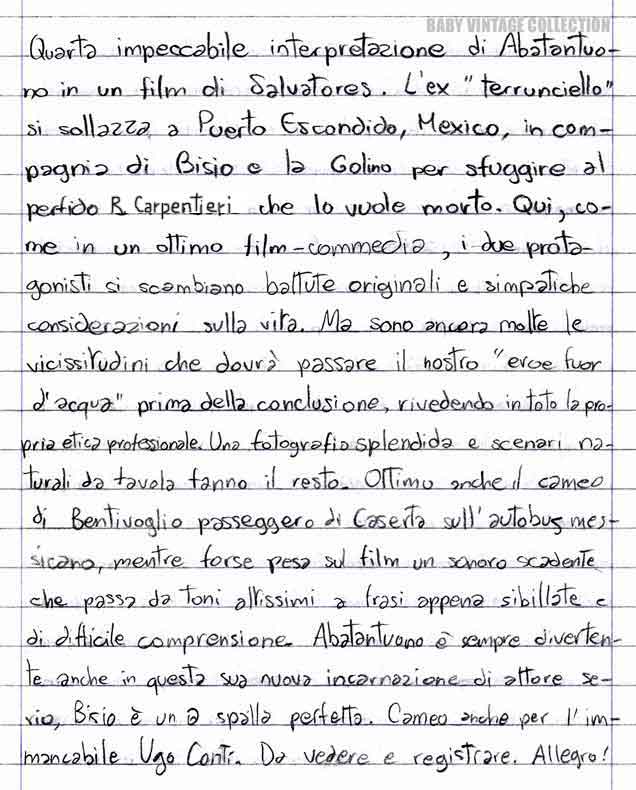 BABY VINTAGE COLLECTION
Quarta impeccabile interpretazione di Abatantuo-
no in un film di Salvatores. L'ex "terrunciello"
si sollazza a Puerto Escondido, Mexico, in com-
pagnia di Bisio e la Golino per sfuggire al
perfido R. Carpentieri che lo vuole morto. Qui, co-
me in un ottimo film-commedia, i due prota-
gonisti si scambiano battute originali e simpatiche
considerazioni sulla vita. Ma sono ancora molte le
vicissitudini che dovrà passare il nostro "eroe fuor
d'acqua" prima della conclusione, rivedendo in toto la pro-
pria etica professionale. Una fotografia splendida e scenari na-
turali da tavola fanno il resto. Ottimo anche il cameo
di Bentivoglio passeggero di Caserta sull'autobus mes-
sicano, mentre forse pesa sul film un sonoro scadente
che passa da toni altissimi a frasi appena sibillate e
di difficile comprensione. Abatantuono è sempre diverten-
te anche in questa sua nuova incarnazione di attore se-
rio, Bisio è un a spalla perfetta. Cameo anche per l'im-
mancabile Ugo Conti. Da vedere e registrare. Allegro!